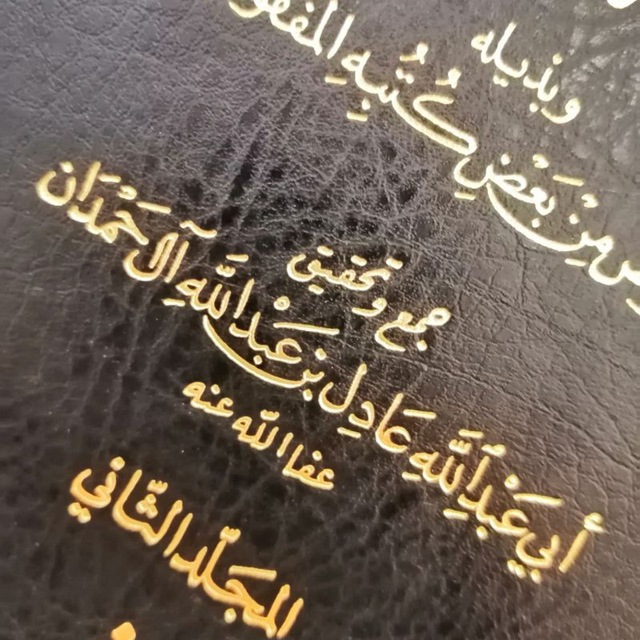 وبذيله
مِنْ بَعْضِ كُتُبِهِ
جمع وتحقيق
أَبي عَبْدِ اللَّهِ عَادِل بْن عَبْدِ اللَّهِ آل حَمْدَان
عفا الله عنه
المجَلّد الثَّاني